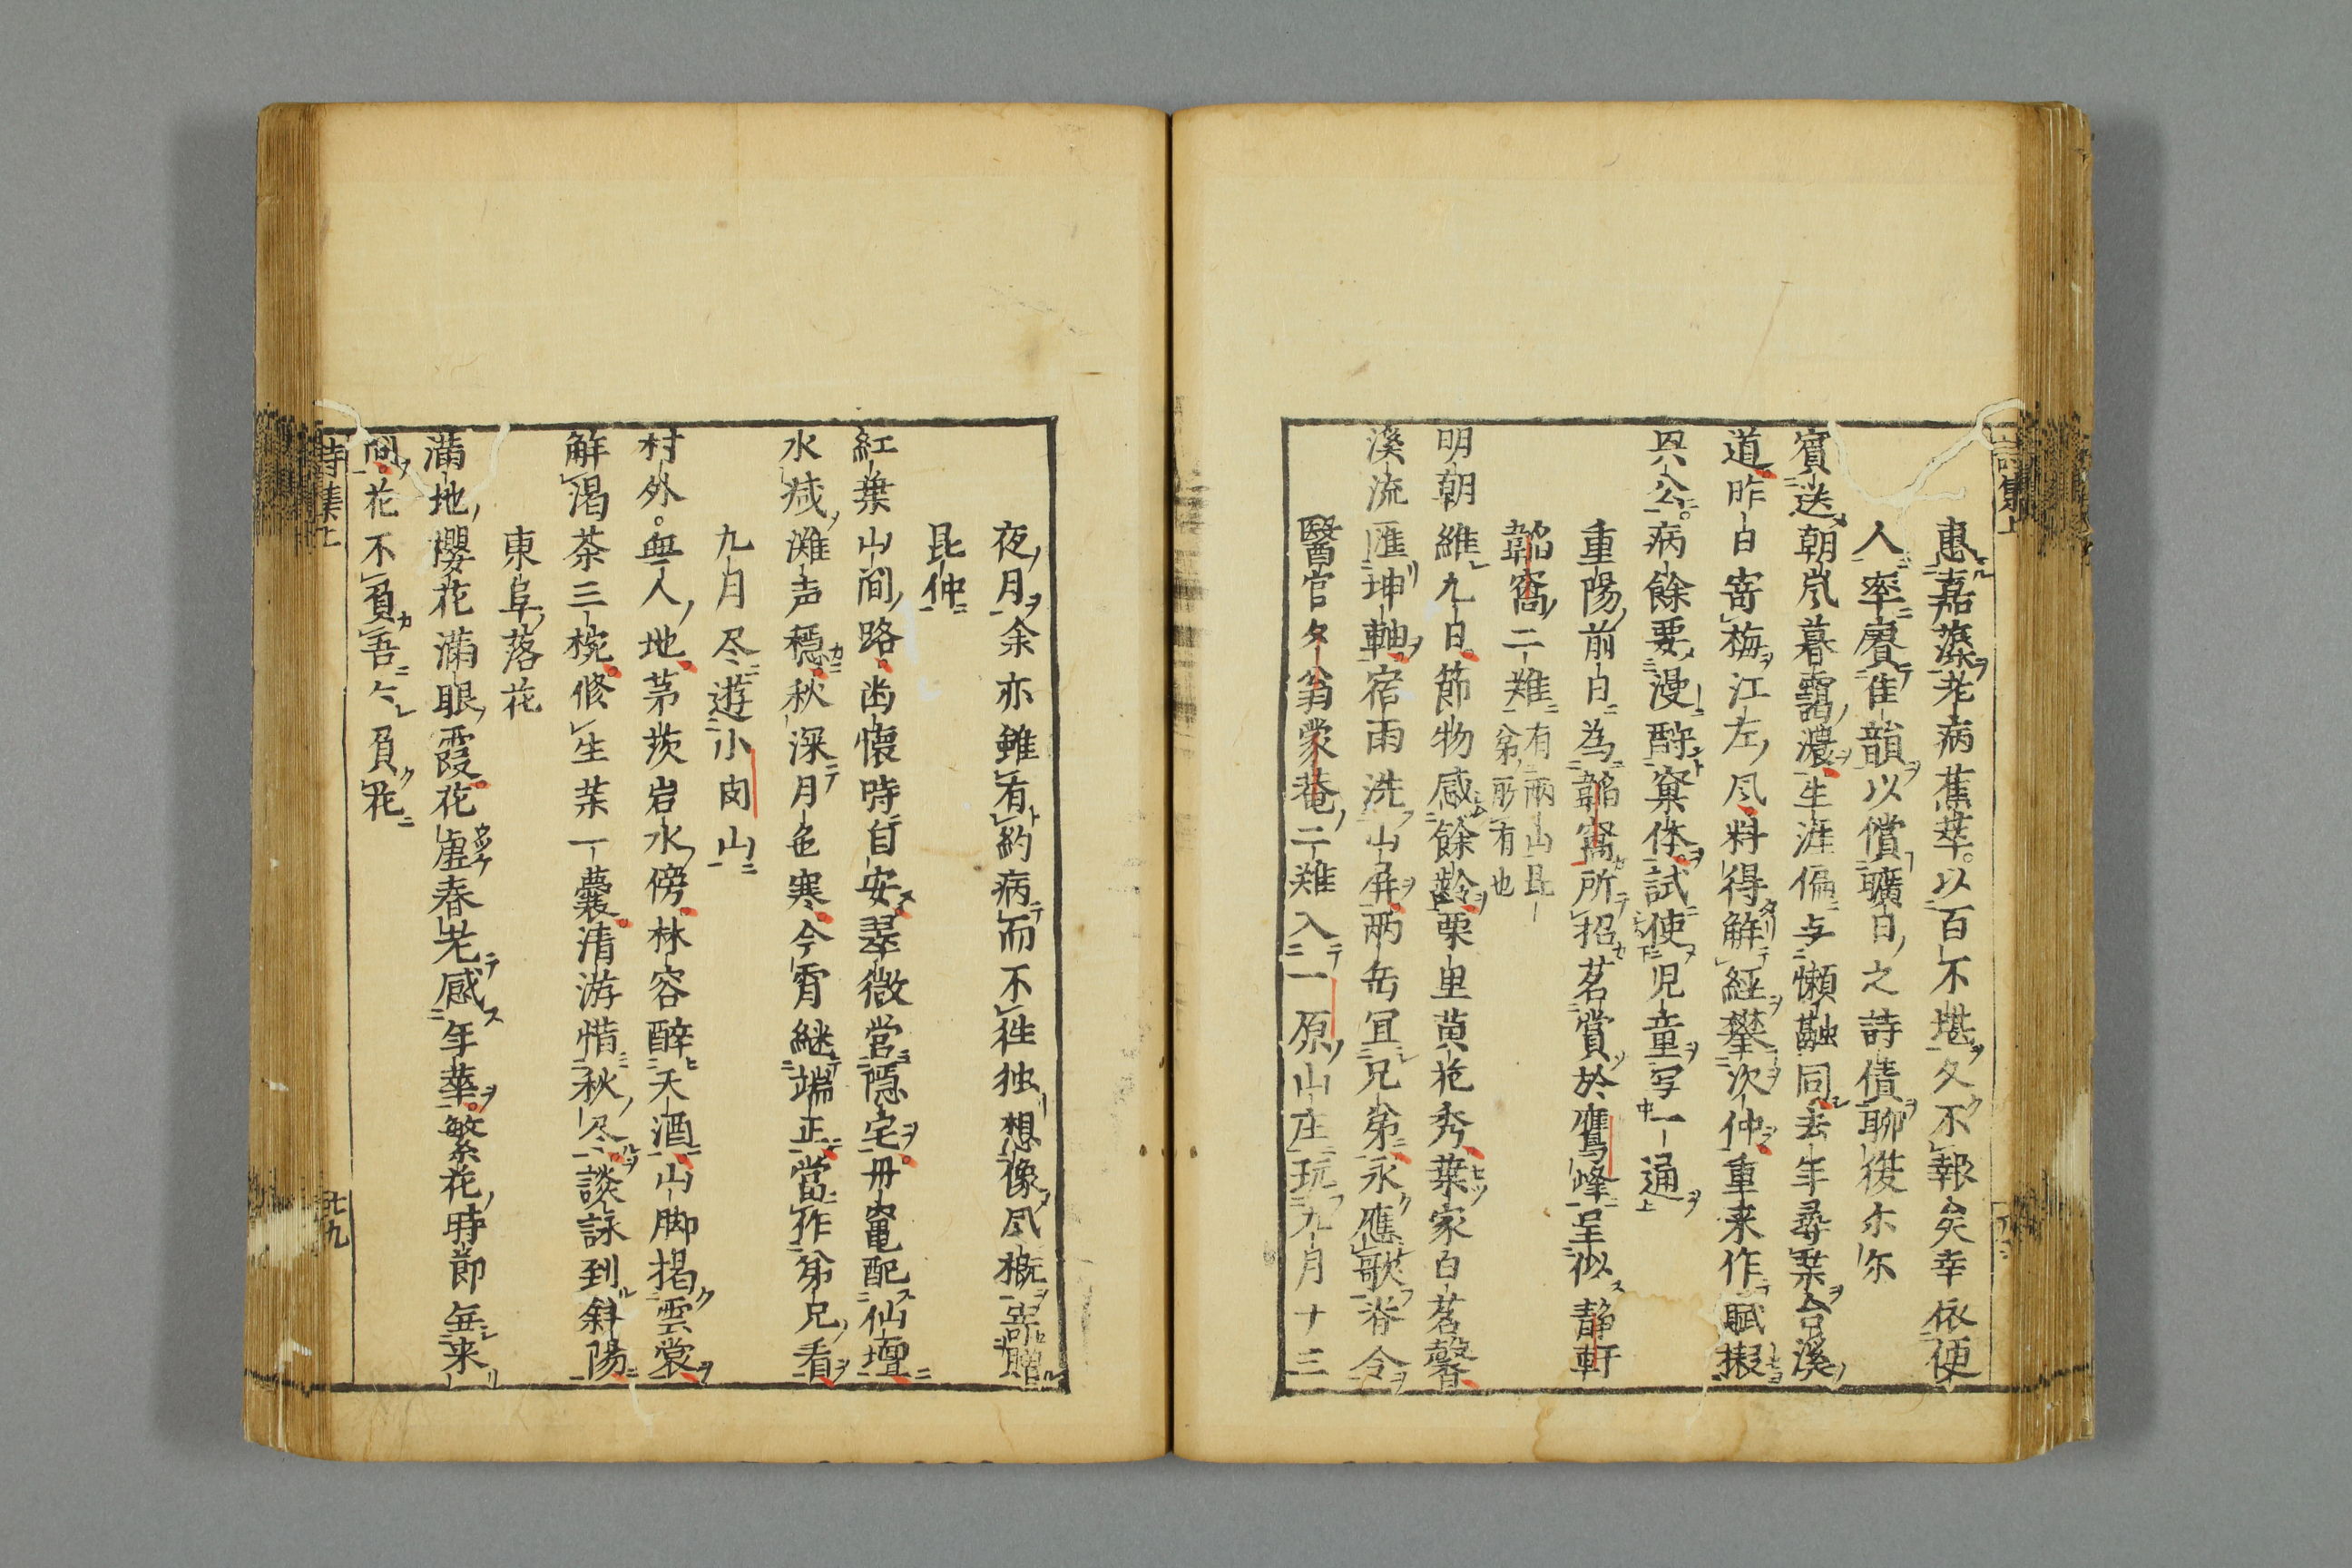 惠嘉藻老病蕉萃以百不堪久不報矣幸依便
人率賡隹韻以償曠日之詩債聊復尓尓
賓送朝嵐暮靄濃生涯偏与懶融同去年尋葉台溪
道昨日寄梅江左風料得解經攀次仲重来作賦擬
興公病餘要漫酹棄体試使児童写一通
重陽前日為韜窩所招茗賞於鷹峰呈似静軒
韜窩二難有両山昆弟所有也
明朝維九日節物感餘齡栗里黄花秀葉家白茗馨
溪流匯坤軸宿雨洗山屏両岳冝兄弟永應歌脊令
醫官夕翁蒙菴二難入一原山庄玩九月十三
詩集上
夜月余亦雖有約病而不徃独想像風概寄贈
昆仲
紅葉山間路歯懐時自安翠微営隠宅丹竈配仙壇
水減灘声穏秋深月色寒今宵継端正當作弟兄看
九月尽遊小図山
村外無人地茅茨岩水傍林容醉天酒山脚掲雲裳
解渇茶三椀修生菓一嚢清游惜秋尽談詠到斜陽
東阜落花
満地櫻花満眼霞花虚春老感年華繁花時節無来
問花不負吾々負花
詩集上
七九